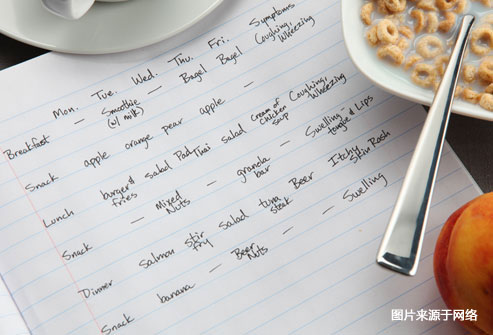 Mon. Tue. Wed. Thu. Fri. Symptoms
Breakfast — Smoothie — Bagel Bagel Coughing,
(w/ milk) Wheezing
Snack apple orange pear apple —
Lunch burger & salad Pad Thai salad Cream of Coughing,
fries chicken Wheezing
soup
Snack — Mixed — granola — Swelling-
Nuts bar tongue & Lips
Dinner Salmon stir salad tuna Beer Itchy
fry steak Skin Rash
Snack banana — Beer — — Swelling
Nuts
图片来源于网络